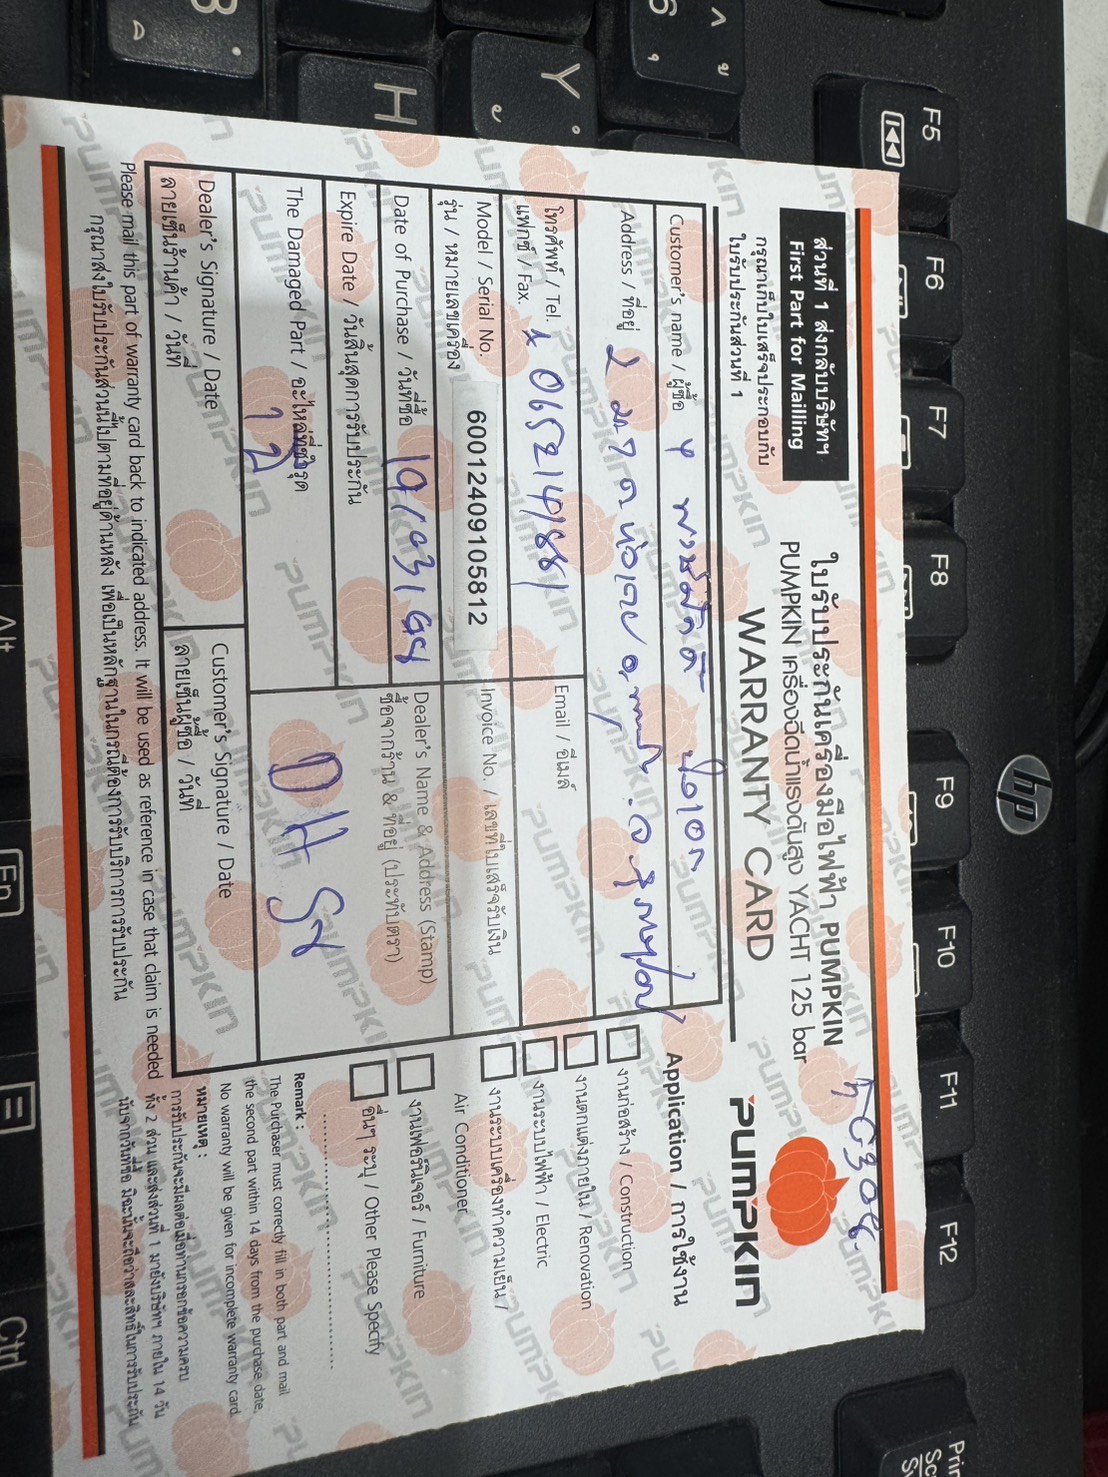 ส่วนที่ 1 ส่งกลับบริษัทฯ
First Part for Mailling
กรุณาเก็บใบเสร็จประกอบกับ
ใบรับประกันส่วนที่ 1
ใบรับประกันเครื่องมือไฟฟ้า PUMPKIN
PUMPKIN เครื่องฉีดน้ำแรงดันสูง YACHT 125 bar
WARRANTY CARD
PUMPKIN
Customer's name / ผู้ซื้อ
Address / ที่อยู่
โทรศัพท์ / Tel. 0652141881
แฟกซ์ / Fax.
Email / อีเมล์
Model / Serial No.
รุ่น / หมายเลขเครื่อง
60012409105812
Invoice No. / เลขที่ใบเสร็จรับเงิน
Date of Purchase / วันที่ซื้อ
Expire Date / วันสิ้นสุดการรับประกัน
Dealer's Name & Address (Stamp)
ชื่อจากร้าน & ที่อยู่ (ประทับตรา)
The Damaged Part / อะไหล่ที่ชำรุด
DH
Dealer's Signature / Date
ลายเซ็นร้านค้า / วันที่
Customer's Signature / Date
ลายเซ็นผู้ซื้อ / วันที่
Please mail this part of warranty card back to indicated address. It will be used as reference in case that claim is needed
กรุณาส่งใบรับประกันส่วนนี้ไปตามที่อยู่ด้านหลัง เพื่อเป็นหลักฐานในกรณีต้องการรับบริการการรับประกัน
Application / การใช้งาน
งานก่อสร้าง / Construction
งานตกแต่งภายใน / Renovation
งานระบบไฟฟ้า / Electric
งานระบบเครื่องทำความเย็น /
Air Conditioner
งานเฟอร์นิเจอร์ / Furniture
อื่นๆ ระบุ / Other Please Specify
Remark :
The Purchaser must correctly fill in both part and mail
the second part within 14 days from the purchase date,
No warranty will be given for incomplete warranty card.
หมายเหตุ :
การรับประกันจะมีผลต่อเมื่อท่านกรอกข้อความครบ
ทั้ง 2 ส่วน และส่งส่วนที่ 1 มายังบริษัทฯ ภายใน 14 วัน
นับจากวันที่ซื้อ มิฉะนั้นจะถือว่าสละสิทธิ์ในการรับประกัน
hp
F5
F6
F7
F8
F9
F10
F11
F12
Y
H
Alt
Fn
Ctrl